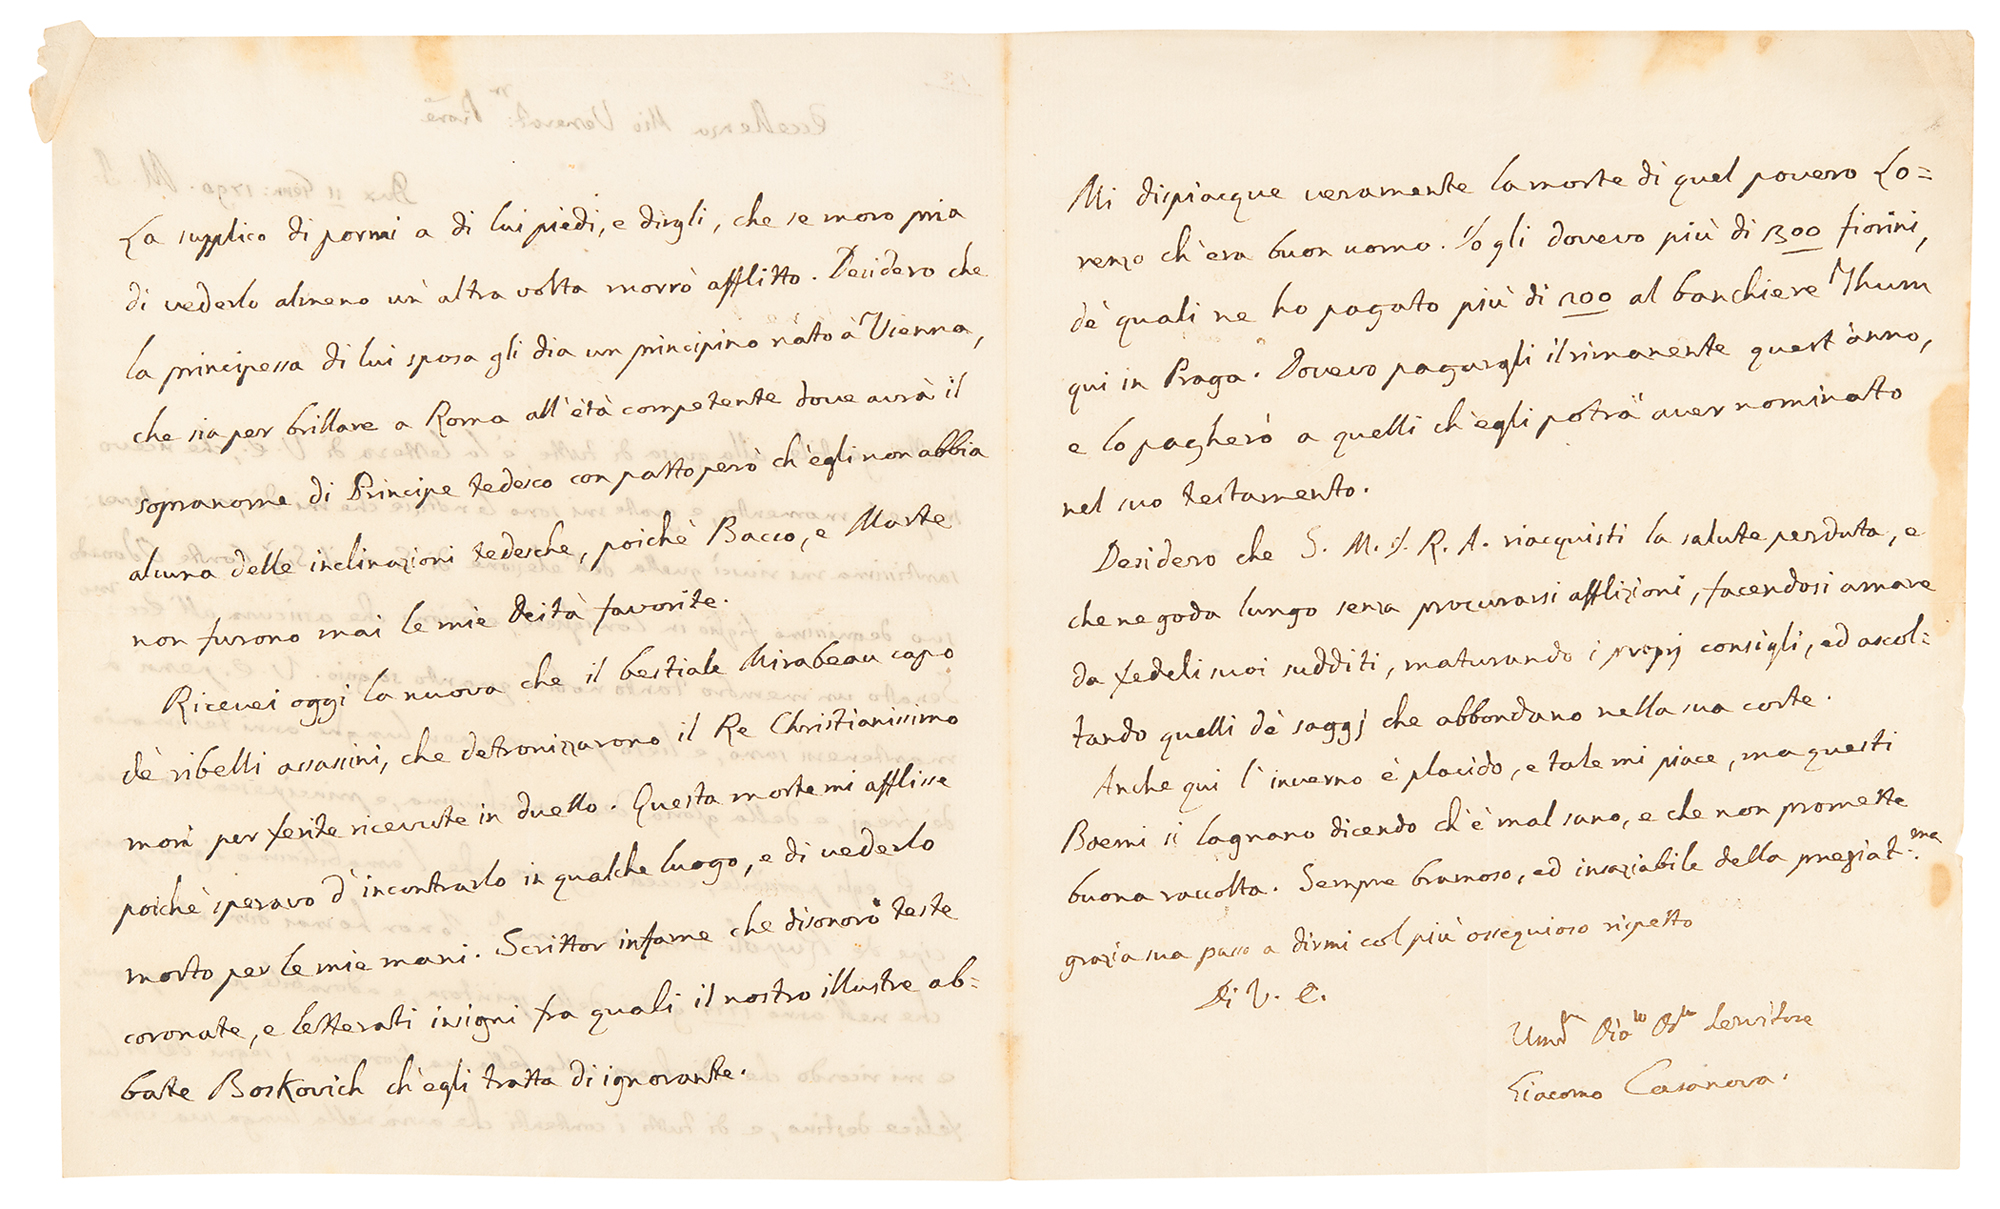 La supplico di pormi a di lui piedi, e dirgli, che se moro pria
di vederlo almeno un'altra volta morrò afflitto. Desidero che
la principessa di lui sposa gli dia un principino nato à Vienna,
che sia per brillare a Roma all'età competente dove avrà il
sopranome di Principe tedesco con patto però ch'egli non abbia
alcuna delle inclinazioni tedesche, poichè Bacco, e Marte
non furono mai le mie deità favorite.
Ricevei oggi la nuova che il bestiale Mirabeau capo
de' ribelli assassini, che detronizzarono il Re Christianissimo
morì per ferite ricevute in duello. Questa morte mi afflisse
poichè speravo d'incontrarlo in qualche luogo, e di vederlo
morto per le mie mani. Scrittor infame che disonorò teste
coronate, e letterati insigni fra quali il nostro illustre ab=
bate Boskovich ch'egli tratta di ignorante.
Mi dispiacque veramente la morte di quel povero Lo=
renzo ch'era buon uomo. Io gli dovevo più di 300 fiorini,
de' quali ne ho pagato più di 200 al banchiere Thum
qui in Praga. Dovevo pagargli il rimanente quest'anno,
e lo pagherò a quelli ch'egli potrà aver nominato
nel suo testamento.
Desidero che S. M. I. R. A. riacquisti la salute perduta, e
che ne goda lungo senza procurarsi afflizioni, facendosi amare
da fedeli suoi sudditi, maturando i proprj consigli, ed ascol=
tando quelli de' saggj che abbondano nella sua corte.
Anche qui l'inverno è placido, e tale mi piace, ma questi
Boemi si lagnano dicendo ch'è mal sano, e che non promette
buona raccolta. Sempre bramoso, ed insaziabile della pregiat:ma
grazia sua passo a dirmi col più ossequioso rispetto
Di V. E.
servitore
Giacomo Casanova.